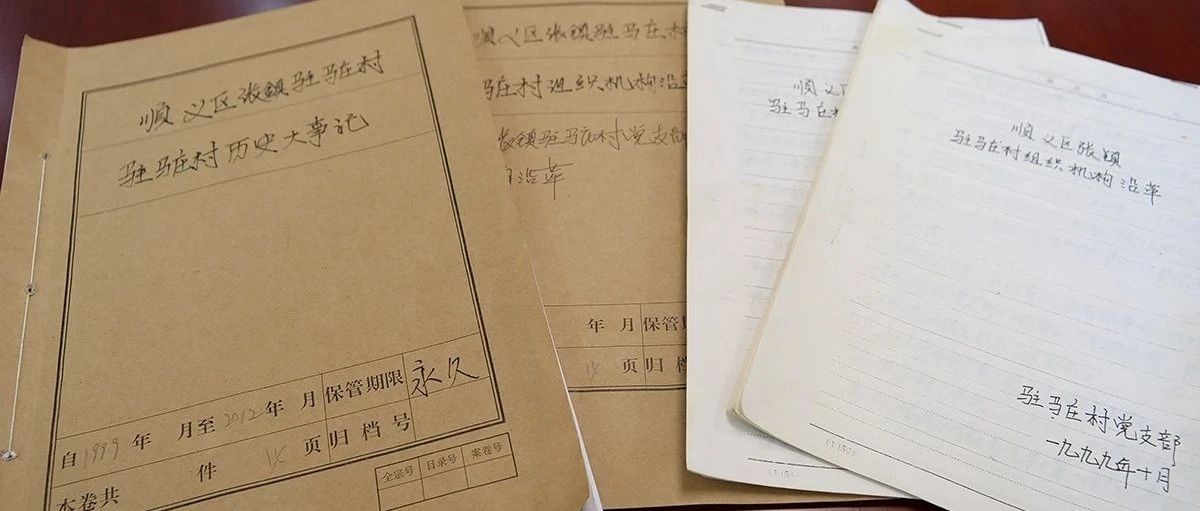 顺义区张镇驻马庄村
驻马庄村历史大事记
自1999年 月至2012年 月
保管期限
永久
本卷共 件 页
归档号
全宗号
目录号
案卷号
顺义区张镇驻马庄村
马庄村组织机构沿革
张镇驻马庄村党支部
沿革
年 月
保管期
页
归档
顺义
驻马庄村
顺义区张镇
驻马庄村组织机构沿革
驻马庄村党支部
一九九九年十月